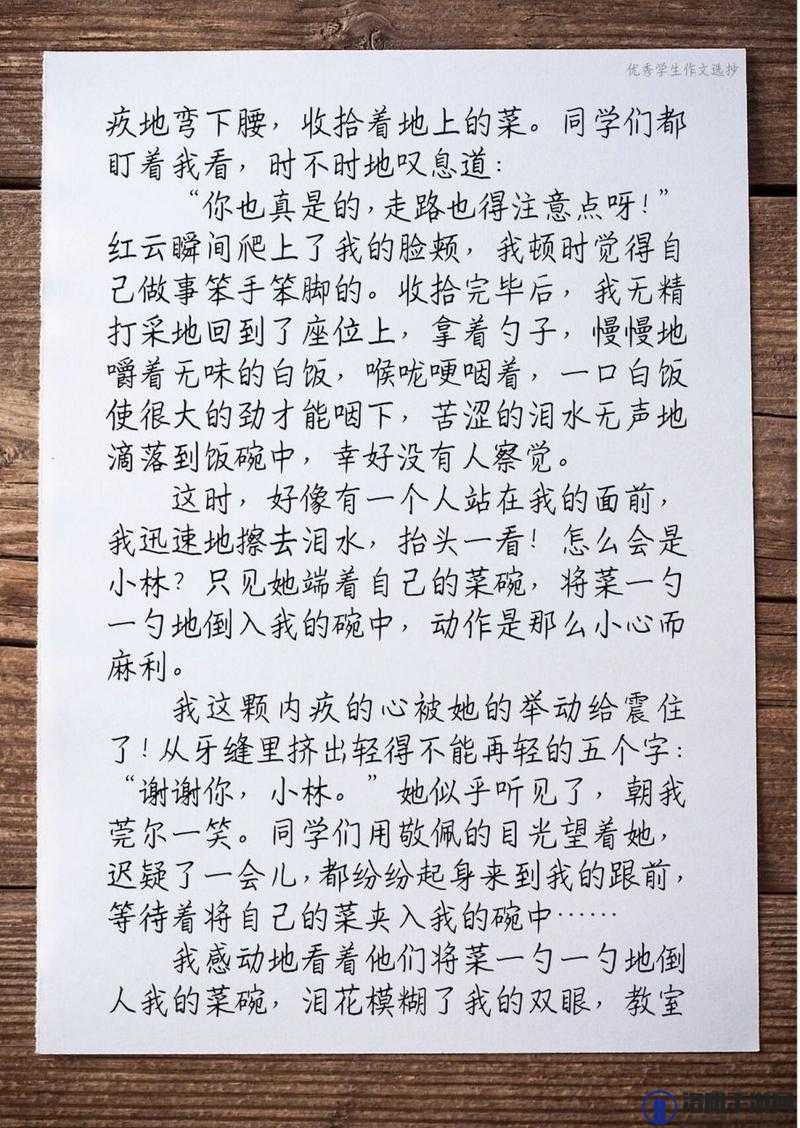 优秀学生作文选抄
疚地弯下腰，收拾着地上的菜。同学们都
盯着我看，时不时地叹息道：
“你也真是的，走路也得注意点呀！”
红云瞬间爬上了我的脸颊，我顿时觉得自
己做事笨手笨脚的。收拾完毕后，我无精
打采地回到了座位上，拿着勺子，慢慢地
嚼着无味的白饭，喉咙哽咽着，一口白饭
使很大的劲才能咽下，苦涩的泪水无声地
滴落到饭碗中，幸好没有人察觉。
这时，好像有一个人站在我的面前，
我迅速地擦去泪水，抬头一看！怎么会是
小林？只见她端着自己的菜碗，将菜一勺
一勺地倒入我的碗中，动作是那么小心而
麻利。
我这颗内疚的心被她的举动给震住
了！从牙缝里挤出轻得不能再轻的五个字：
“谢谢你，小林。”她似乎听见了，朝我
莞尔一笑。同学们用敬佩的目光望着她，
迟疑了一会儿，都纷纷起身来到我的跟前，
等待着将自己的菜夹入我的碗中……
我感动地看着他们将菜一勺一勺地倒
人我的菜碗，泪花模糊了我的双眼，教室